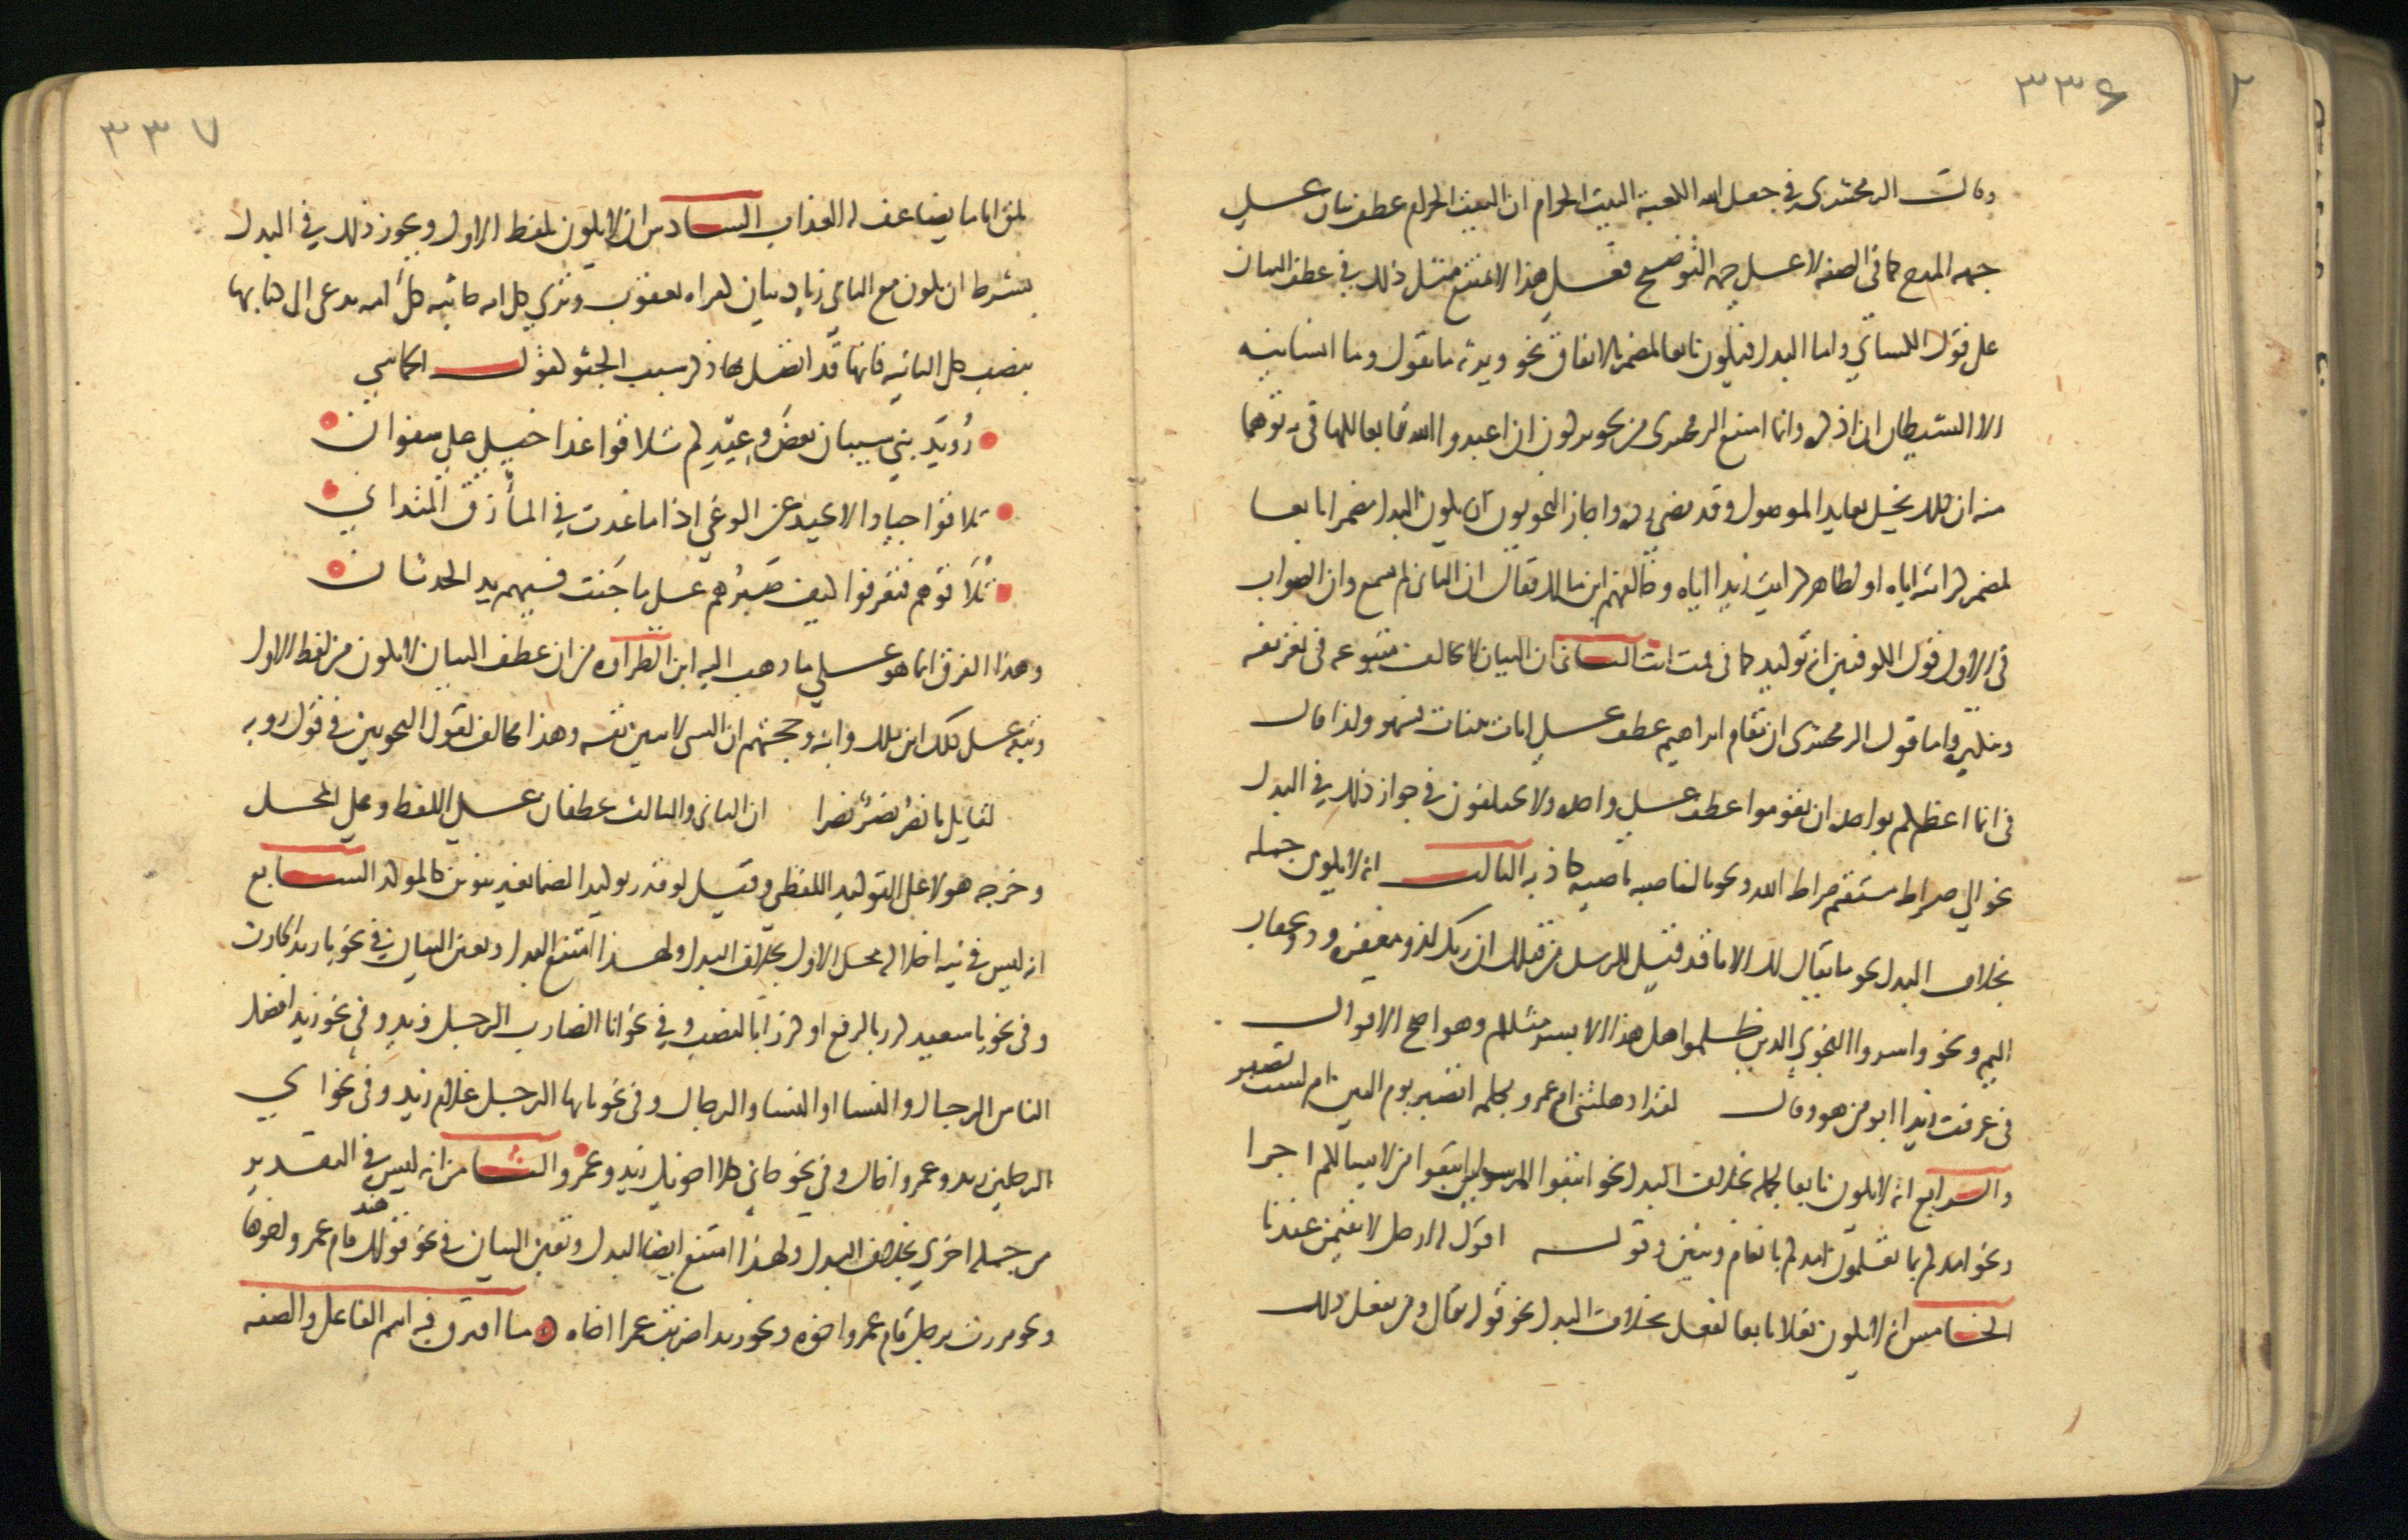 ٣٣٦
وقال الزمخشري في جعل الله الكعبة البيت الحرام ان البيت الحرام عطف بيان على
جهه المدح كما في الصفه لا على جهه التوضيح فعلى هذا لا يمتنع مثل ذلك في عطف البيان
على قول الكسائي واما البدل فيكون تابعا للمضمر بالاتفاق نحو ويرثه ما يقول وما انسانيه
الا الشيطان ان اذكره وانما امتنع الزمخشري من تجويز كون ان اعبدوا الله تابعا للها في به توهما
منه ان ذلك يخل بعايد الموصول وقد مضى رده واجاز النحويون ان يكون البدل مضمرا تابعا
لمضمر كرايته اياه او لظاهر كرايت زيدا اياه وخالفهم ابن مالك فقال ان الثاني لم يسمع وان الصواب
في الاول قول الكوفيين انه توكيد كما في قمت انت الثاني ان البيان لا يخالف متبوعه في تعريفه
وتنكيره واما قول الزمخشري ان مقام ابراهيم عطف على ايات بينات فسهو وكذا قال
في انما اعظكم بواحده ان تقوموا عطف على واحده ولا يختلفون في جواز ذلك في البدل
نحو الى صراط مستقيم صراط الله ونحو بالناصيه ناصيه كاذبه الثالث انه لا يكون جمله
بخلاف البدل نحو ما يقال لك الا ما قد قيل للرسل من قبلك ان ربك لذو مغفره وذو عقاب
اليم ونحو واسروا النجوى الذين ظلموا هل هذا الا بشر مثلكم وهو اصح الاقوال
في عرفت زيدا ابو من هو وقال لقد اذهلتني ام عمرو بكلمه اتصبر يوم البين ام لست تصبر
والرابع انه لا يكون تابعا لجمله بخلاف البدل نحو اتبعوا المرسلين اتبعوا من لا يسالكم اجرا
ونحو امدكم بما تعلمون امدكم بانعام وبنين وقوله اقول له ارحل لا تقيمن عندنا
الخامس انه لا يكون فعلا تابعا لفعل بخلاف البدل نحو قوله تعالى ومن يفعل ذلك
٣٣٧
يلق اثاما يضاعف له العذاب السادس ان لا يكون بلفظ الاول ويجوز ذلك في البدل
بشرط ان يكون مع الثاني زياده بيان كقراه يعقوب وترى كل امه جاثيه كل امه تدعى الى كتابها
بنصب كل الثانيه فانها قد اتصل بها ذكر سبب الجثو كقول الحماسي
رُويَدَ بني شيبان بعضَ وعيّدكم تلاقوا غدا خيلي على سفوان
تلاقوا جيادا لا تحيد عن الوغى اذا ما غدت في المأزق المتداني
تُلاقوهم فتعرفوا كيف صبرُهم على ما جَنت فيهم يد الحدثان
وهذا الفرق انما هو على ما ذهب اليه ابن الطراوه من ان عطف البيان لا يكون من لفظ الاول
وتبعه على ذلك ابن مالك وابنه وحجتهم ان الشي لا يبين نفسه وهذا مخالف لقول النحويين في قول روبه
لقايل يا نصرُ نصرٌ نصرا ان الثاني والثالث عطفان على اللفظ وعلى المحل
وخرجه هولا على التوكيد اللفظي وقيل لو قدر توكيدا لضما بغير تنوين كالموكد السابع
انه ليس في نيه احلاله محل الاول بخلاف البدل ولهذا امتنع البدل وتعين البيان في نحو يا زيد الحارث
وفي نحو يا سعيد كرز بالرفع او كرزا بالنصب وفي نحو انا الضارب الرجل زيد وفي نحو زيد افضل
الناس الرجال والنسا او النسا والرجال وفي نحو يا ايها الرجل غلام زيد وفي نحو اي
الرجلين زيد وعمرو اتاك وفي نحو جاني كلا اخويك زيد وعمرو الثامن انه ليس في التقدير
من جمله اخرى بخلاف البدل ولهذا امتنع ايضا البدل وتعين البيان في نحو قولك هند قام عمرو اخوها
ونحو مررت برجل قام عمرو اخوه ونحو زيد ضربت عمرا اخاه ما افترق فيه اسم الفاعل والصفه